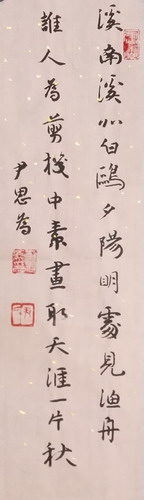 溪南溪北白鷗夕陽明處見漁舟
誰人為剪機中素畫取天涯一片秋
尹思為